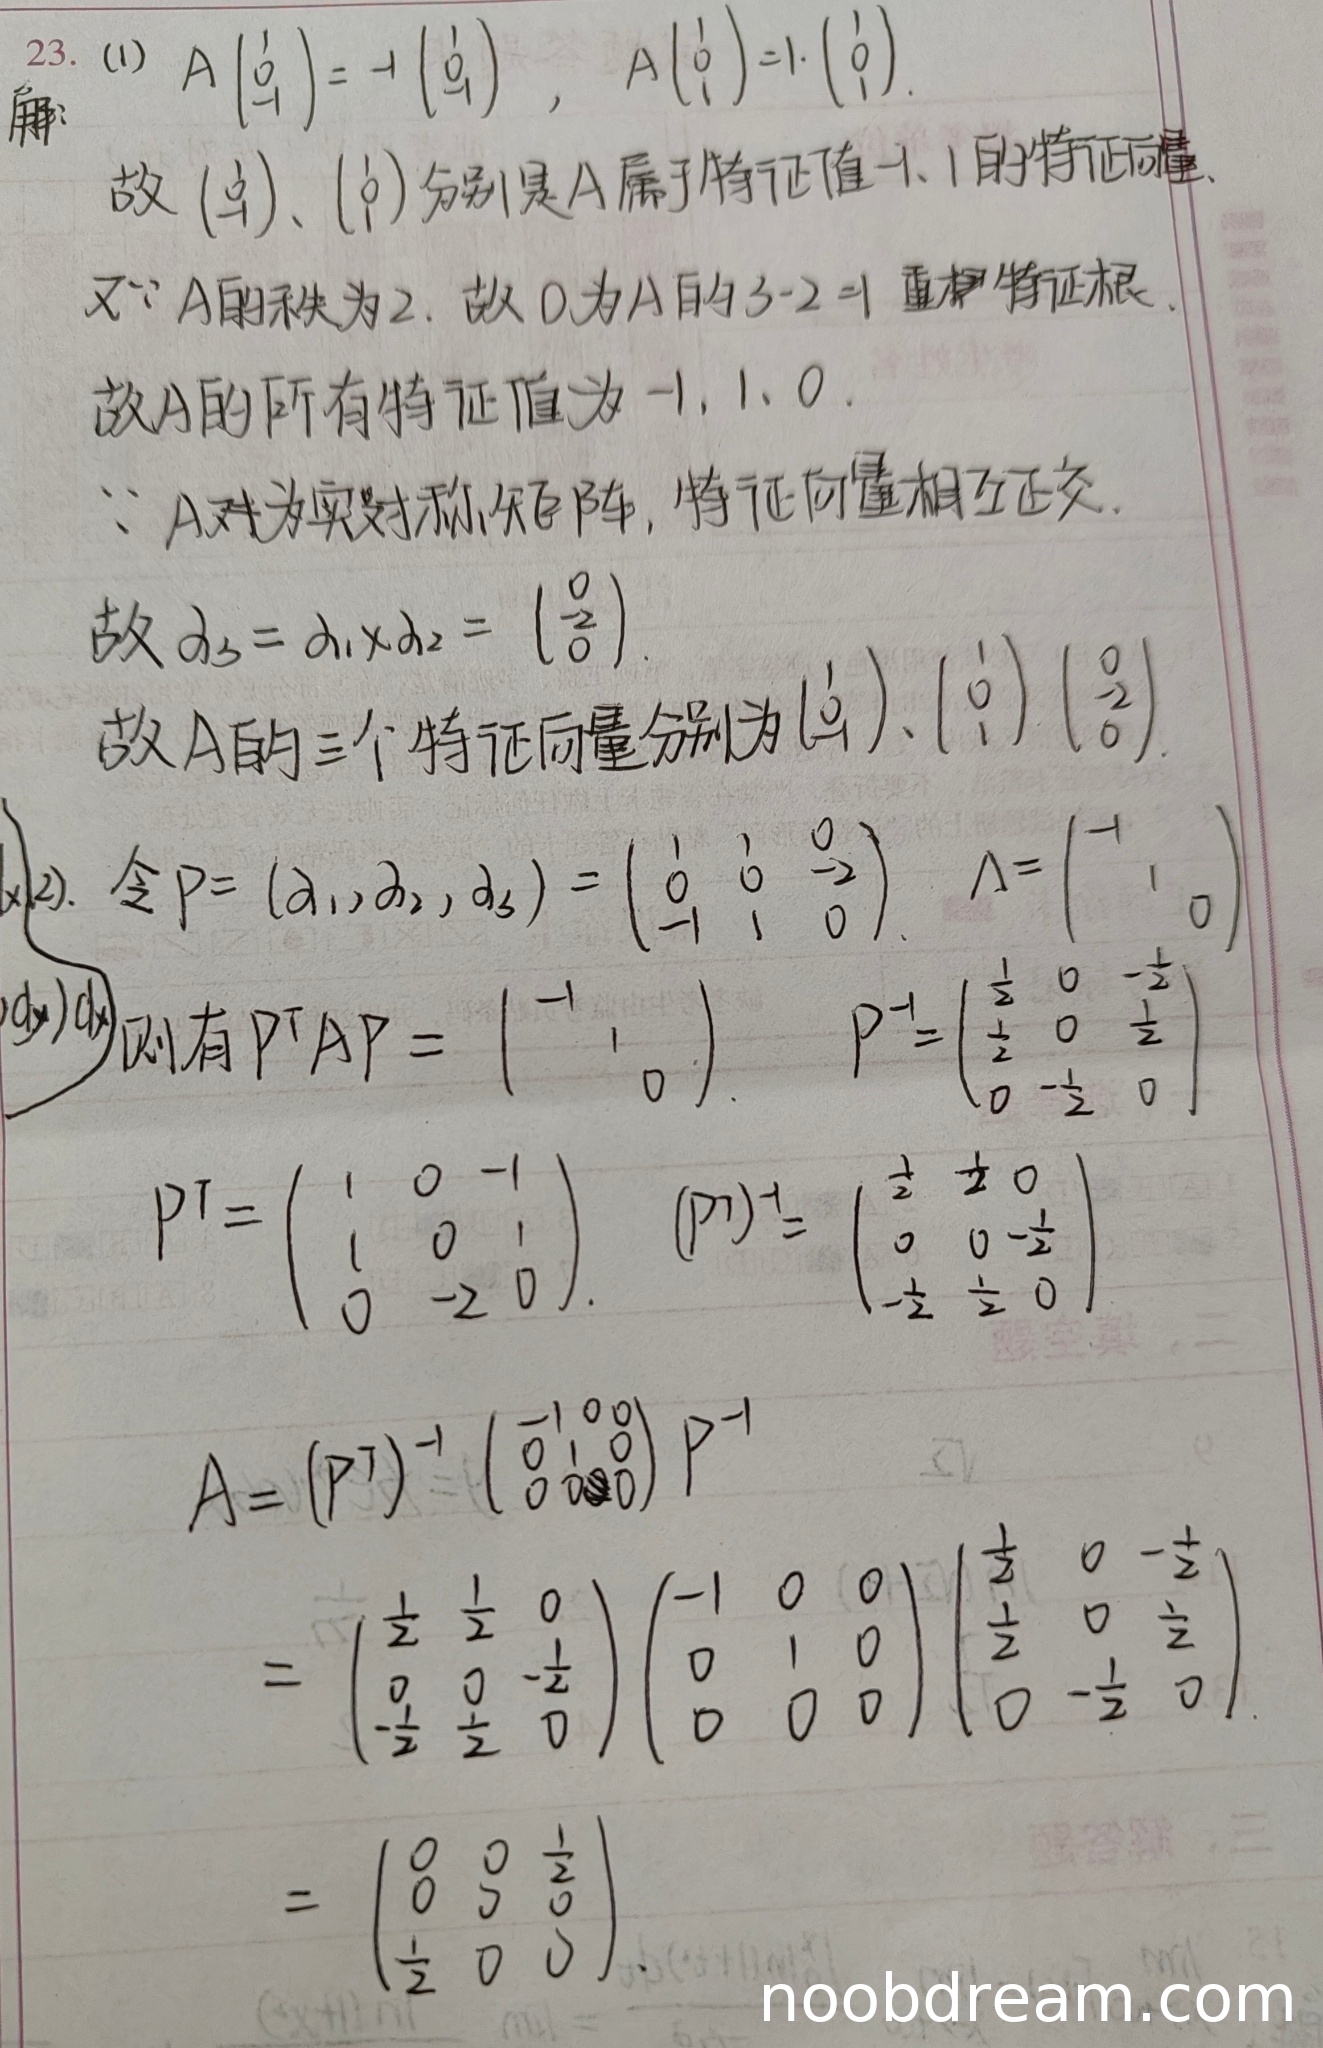 23. (1) A(1 0 -1) = -1(1 0 -1) , A(1 0 1) = 1·(1 0 1).
解:
故 (1 0 -1)、(1 0 1) 分别是A属于特征值-1、1的特征向量、
又∵ A的秩为2. 故0为A的3-2=1 重 特征根.
故A的所有特征值为 -1、1、0.
∵ A为实对称矩阵, 特征向量相互正交.
故 α₃ = α₁×α₂ = (0 -2 0).
故A的三个特征向量分别为(1 0 -1)、(1 0 1) (0 -2 0).
(2). 令P = (α₁, α₂, α₃) = (1 1 0
0 0 -2
-1 1 0). Λ = (-1
1
0)
dx)dx
则有 PᵀAP = (-1
1
0). P⁻¹ = (1/2 0 -1/2
1/2 0 1/2
0 -1/2 0)
Pᵀ = (1 0 -1
1 0 1
0 -2 0). (Pᵀ)⁻¹ = (1/2 1/2 0
0 0 -1/2
-1/2 1/2 0)
A = (Pᵀ)⁻¹ (-1 0 0
0 1 0
0 0 0) P⁻¹
= (1/2 1/2 0
0 0 -1/2
-1/2 1/2 0) (-1 0 0
0 1 0
0 0 0) (1/2 0 -1/2
1/2 0 1/2
0 -1/2 0).
= (0 0 1/2
0 0 0
1/2 0 0).
noobdream.com